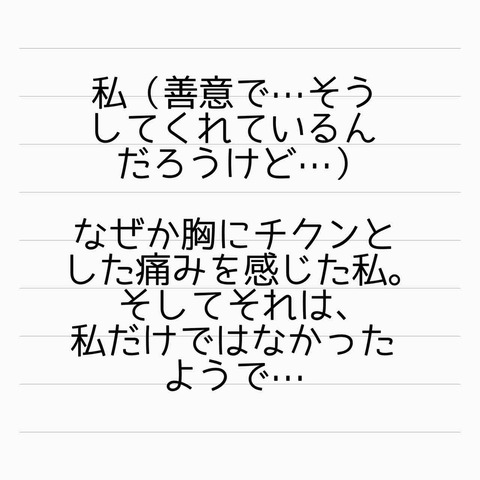 私（善意で…そう
してくれているん
だろうけど…）
なぜか胸にチクンと
した痛みを感じた私。
そしてそれは、
私だけではなかった
ようで…